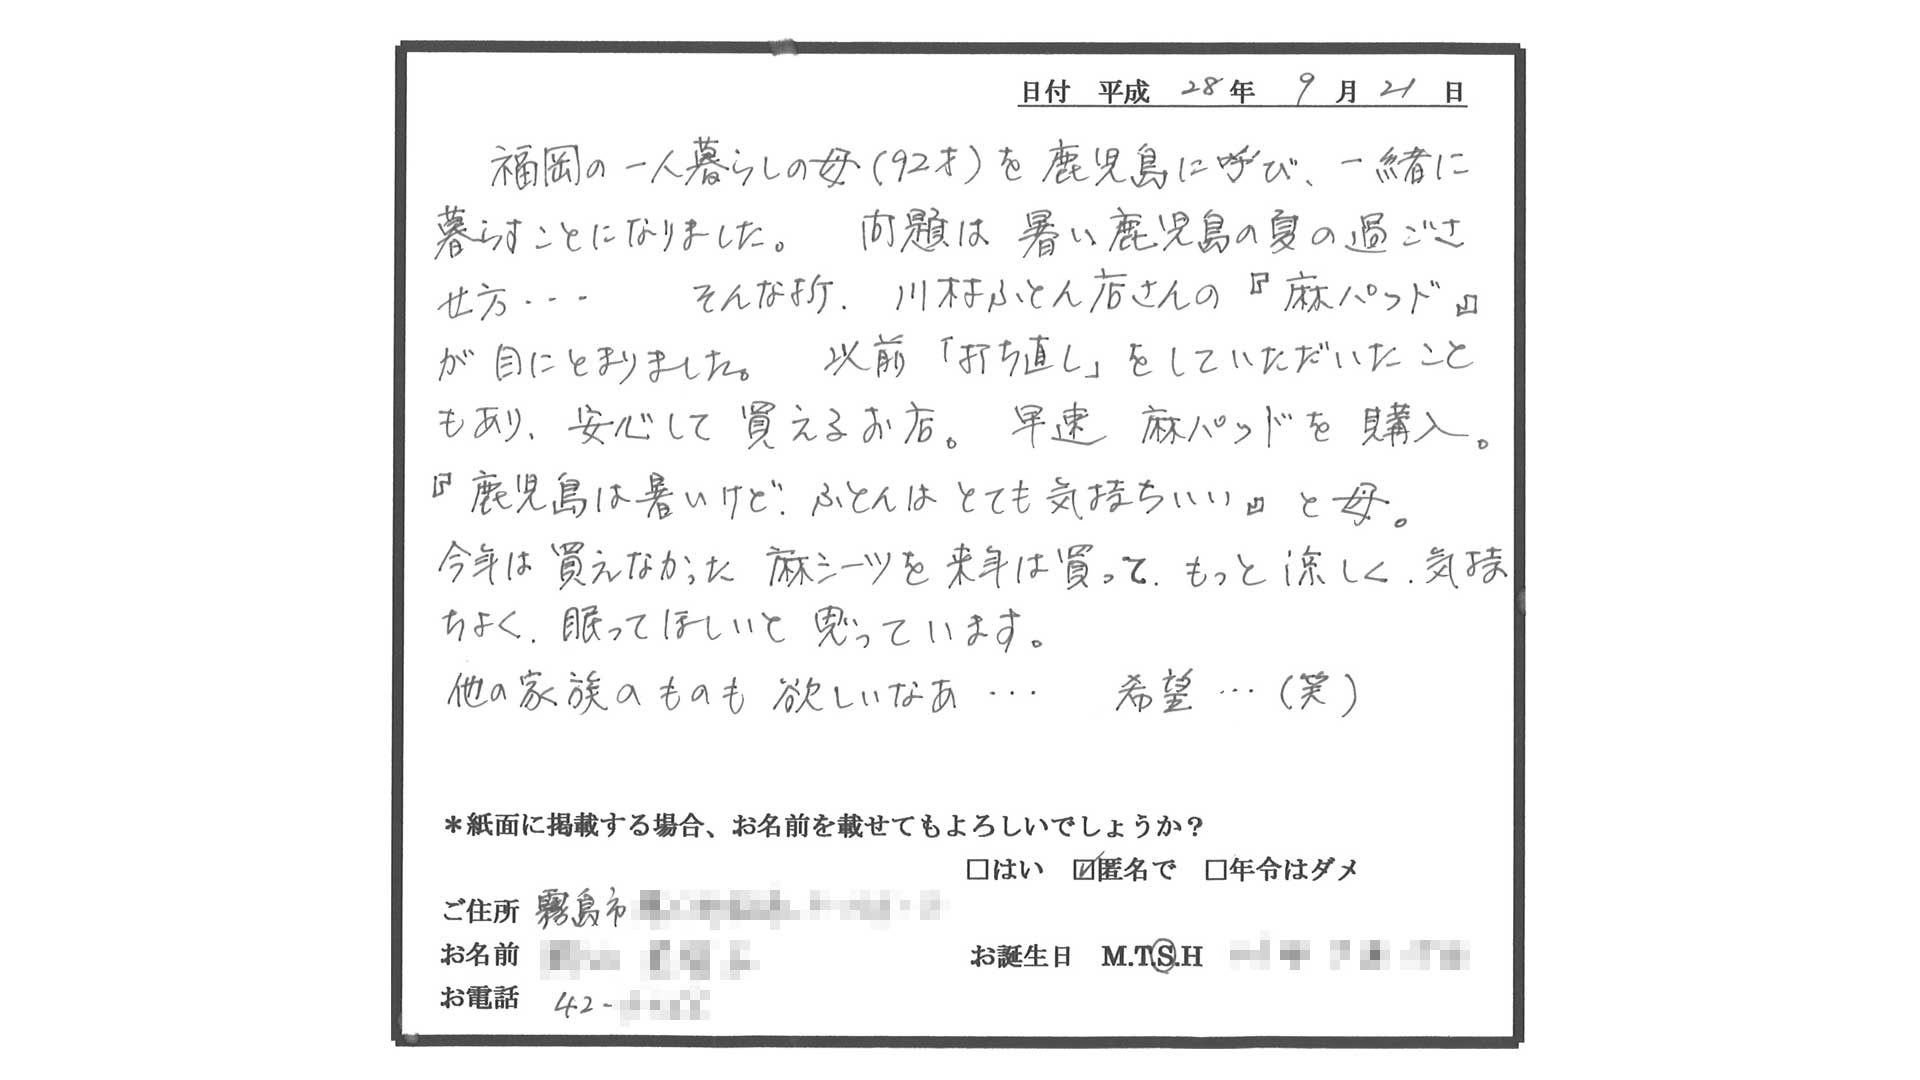 日付 平成 28年 9月 21日
福岡の一人暮らしの母(92才)を鹿児島に呼び、一緒に
暮らすことになりました。 問題は 暑い鹿児島の夏の過ごさ
せ方・・・ そんな折、川村ふとん店さんの『麻パッド』
が目にとまりました。 以前「打ち直し」をしていただいたこと
もあり、安心して買えるお店。 早速 麻パッドを購入。
『鹿児島は暑いけど、ふとんはとても気持ちいい』と母。
今年は買えなかった麻シーツを来年は買って、もっと涼しく、気持
ちよく、眠ってほしいと思っています。
他の家族のものも欲しいなあ・・・ 希望・・・(笑)
＊紙面に掲載する場合、お名前を載せてもよろしいでしょうか？
□はい ☑匿名で □年令はダメ
ご住所 霧島市
お名前
お誕生日 M.T.S.H
お電話 42-